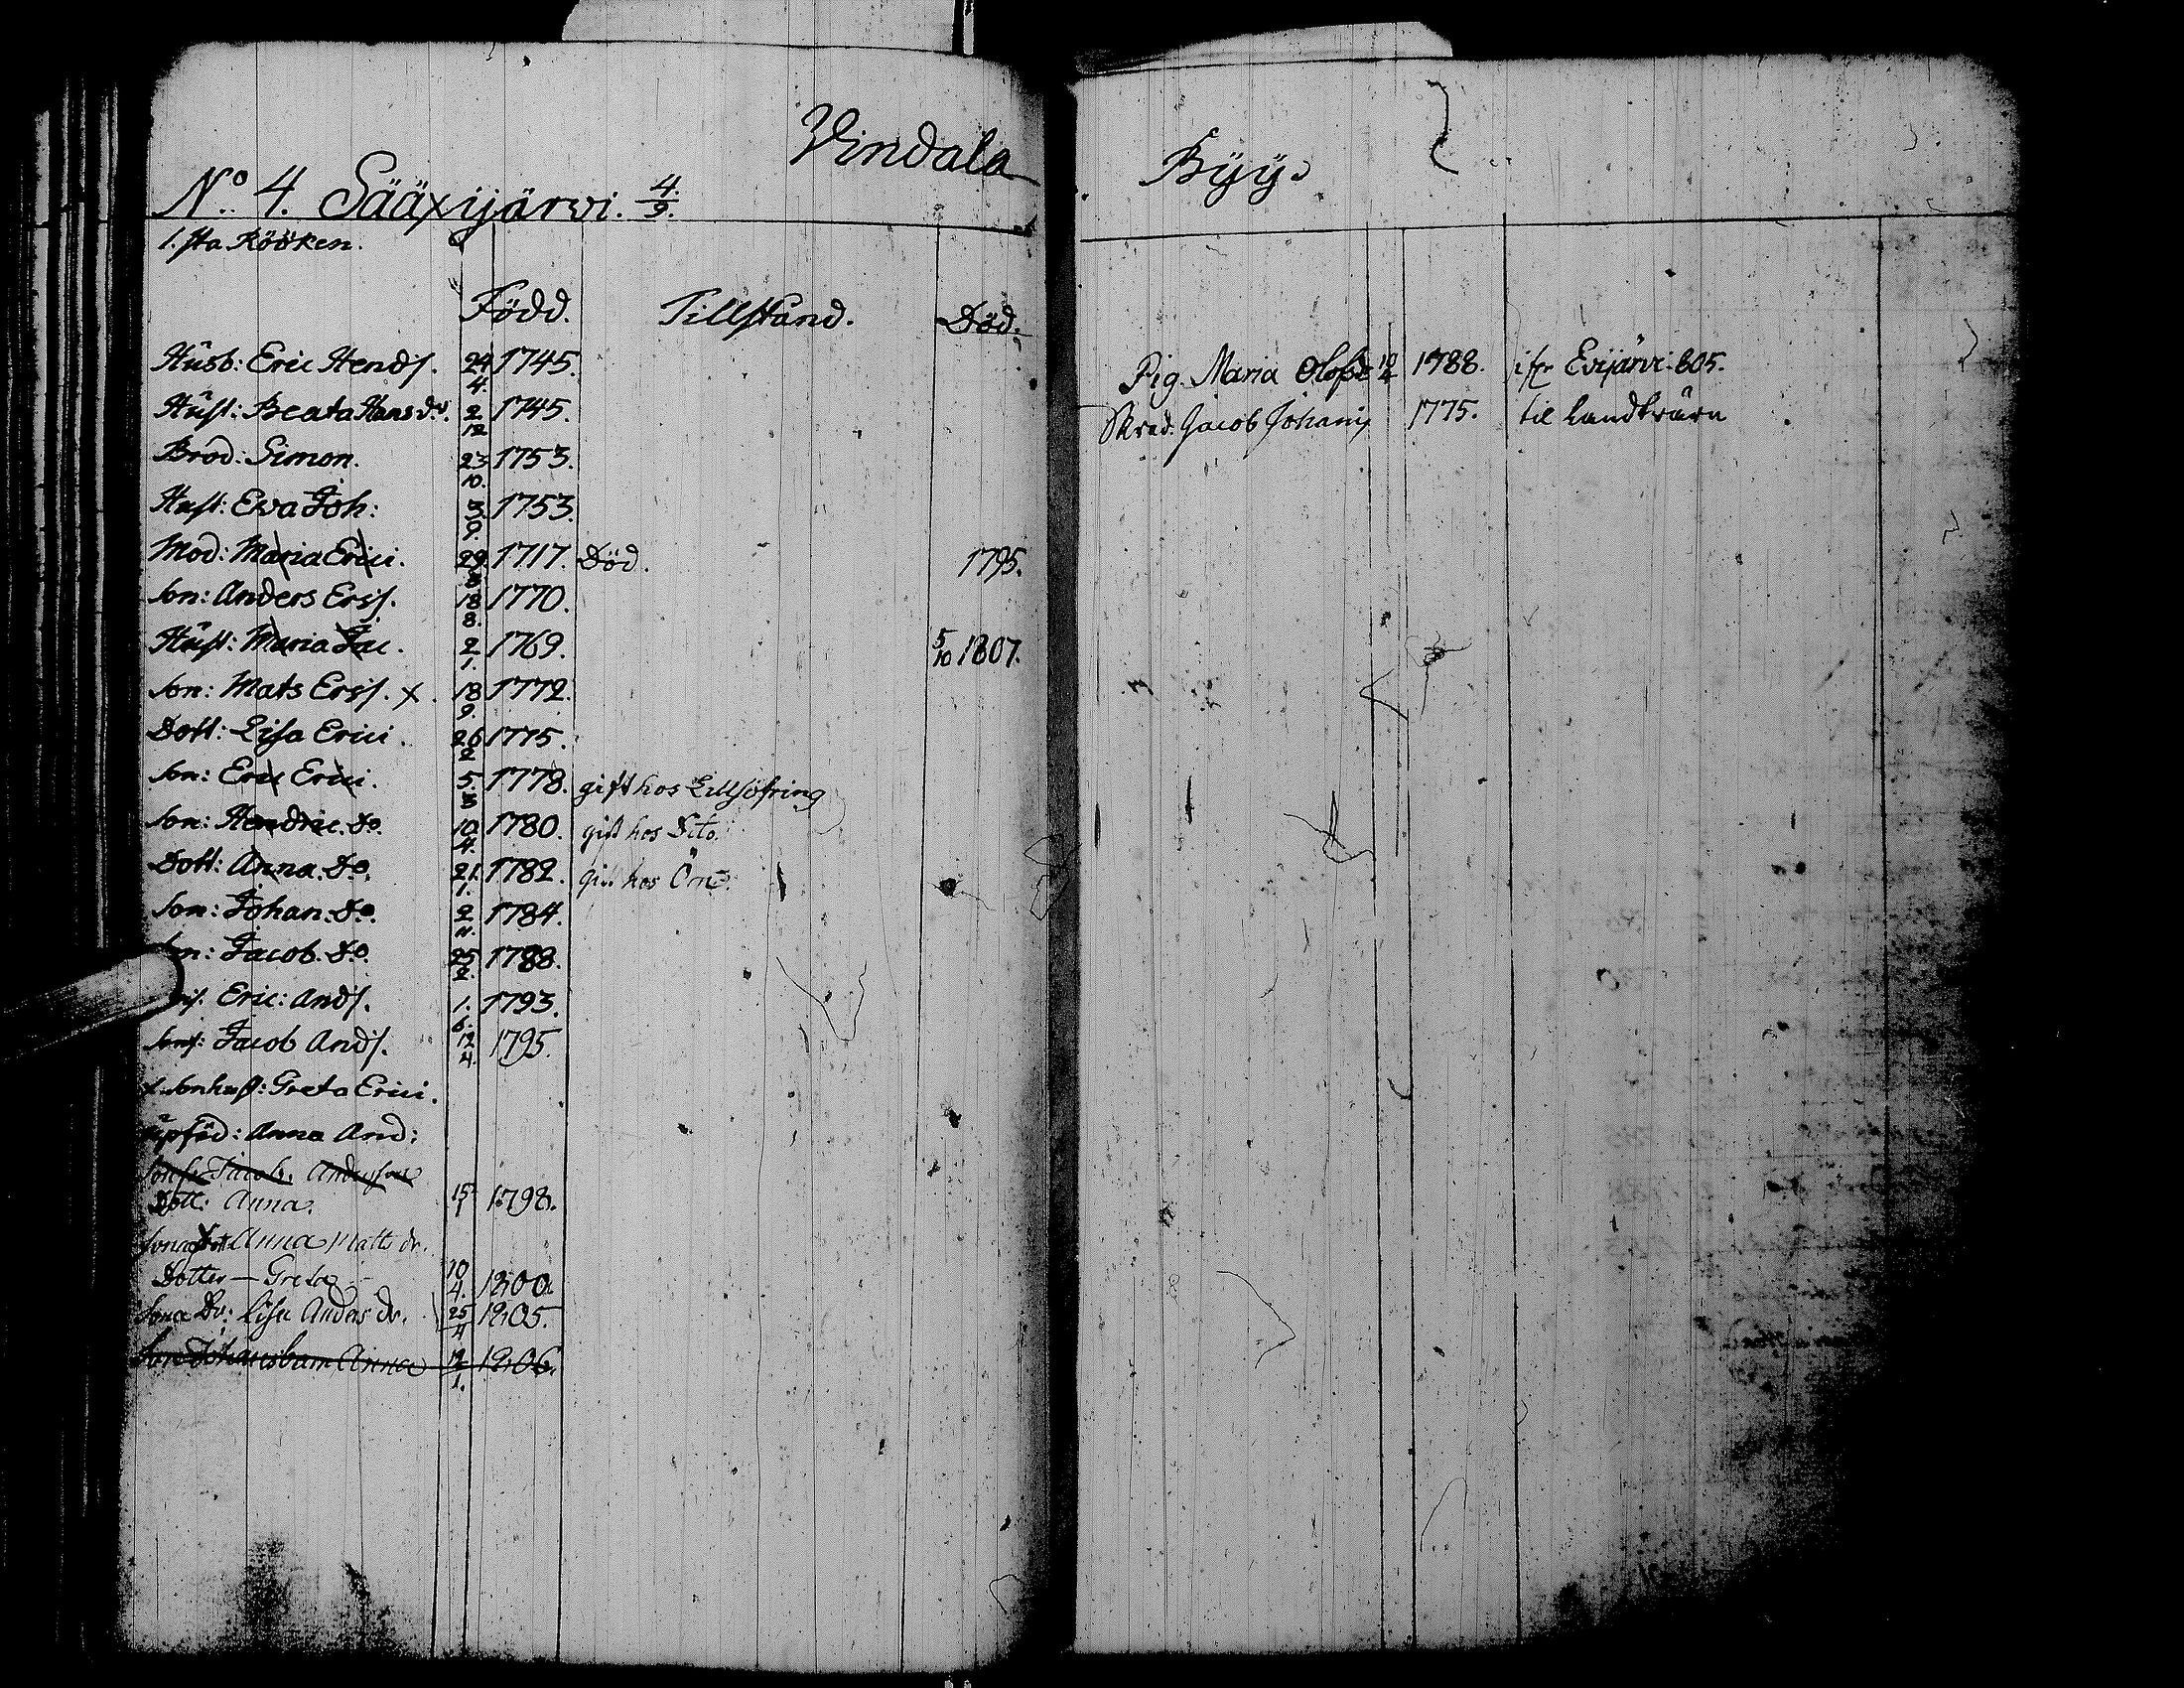 Vindala
Byy.
No. 4. Sääxijärwi. 4/9.
1.sta Rööken.
Född. Tillstånd. Död.
Husb: Eric Hends. 24/4. 1745.
Hust: Beata Hansdr. 2/12 1745.
Brod: Simon. 23/10. 1753.
Hust: Ewa Joh: 3./9. 1753.
Mod: Maria Erici. 29./8 1717. Död. 1795.
Son: Anders Ers. 18/8. 1770.
Hust: Maria Jac. 2/1. 1769. 5/10 1807.
Son: Mats Ers. x. 18/9. 1772.
Dott: Lisa Erici. 26/2 1775.
Son: Eric Erici. 5./3 1778. gift hos Lillsöfring
Son: Hendric. Do. 10./4. 1780. gift hos Sito.
Dott: Anna. Do. 21./1. 1782. gift hos Örn.
Son: Johan. Do. 2/11. 1784.
Son: Jacob. Do. 25/2. 1788.
Eric: Ands. 1./6. 1793.
Sons: Jacob Ands. 12/4. 1795.
x Sonhust: Greta Erici.
upföd: Anna And:
Jacob. Andersson
Dott: Anna. 15/1 1798.
Sona Dott Anna Matts dr.
Dotter — Greta 10/4. 1800.
Sona Dr: Lisa Anders dr. 25/4 1805.
Son Johans barn Anna 12/1. 1806.
Pig. Maria Olofsd 10/4 1788. ifr Evijärvi 805.
Skräd. Jacob Johans 1775. til Landkrärn